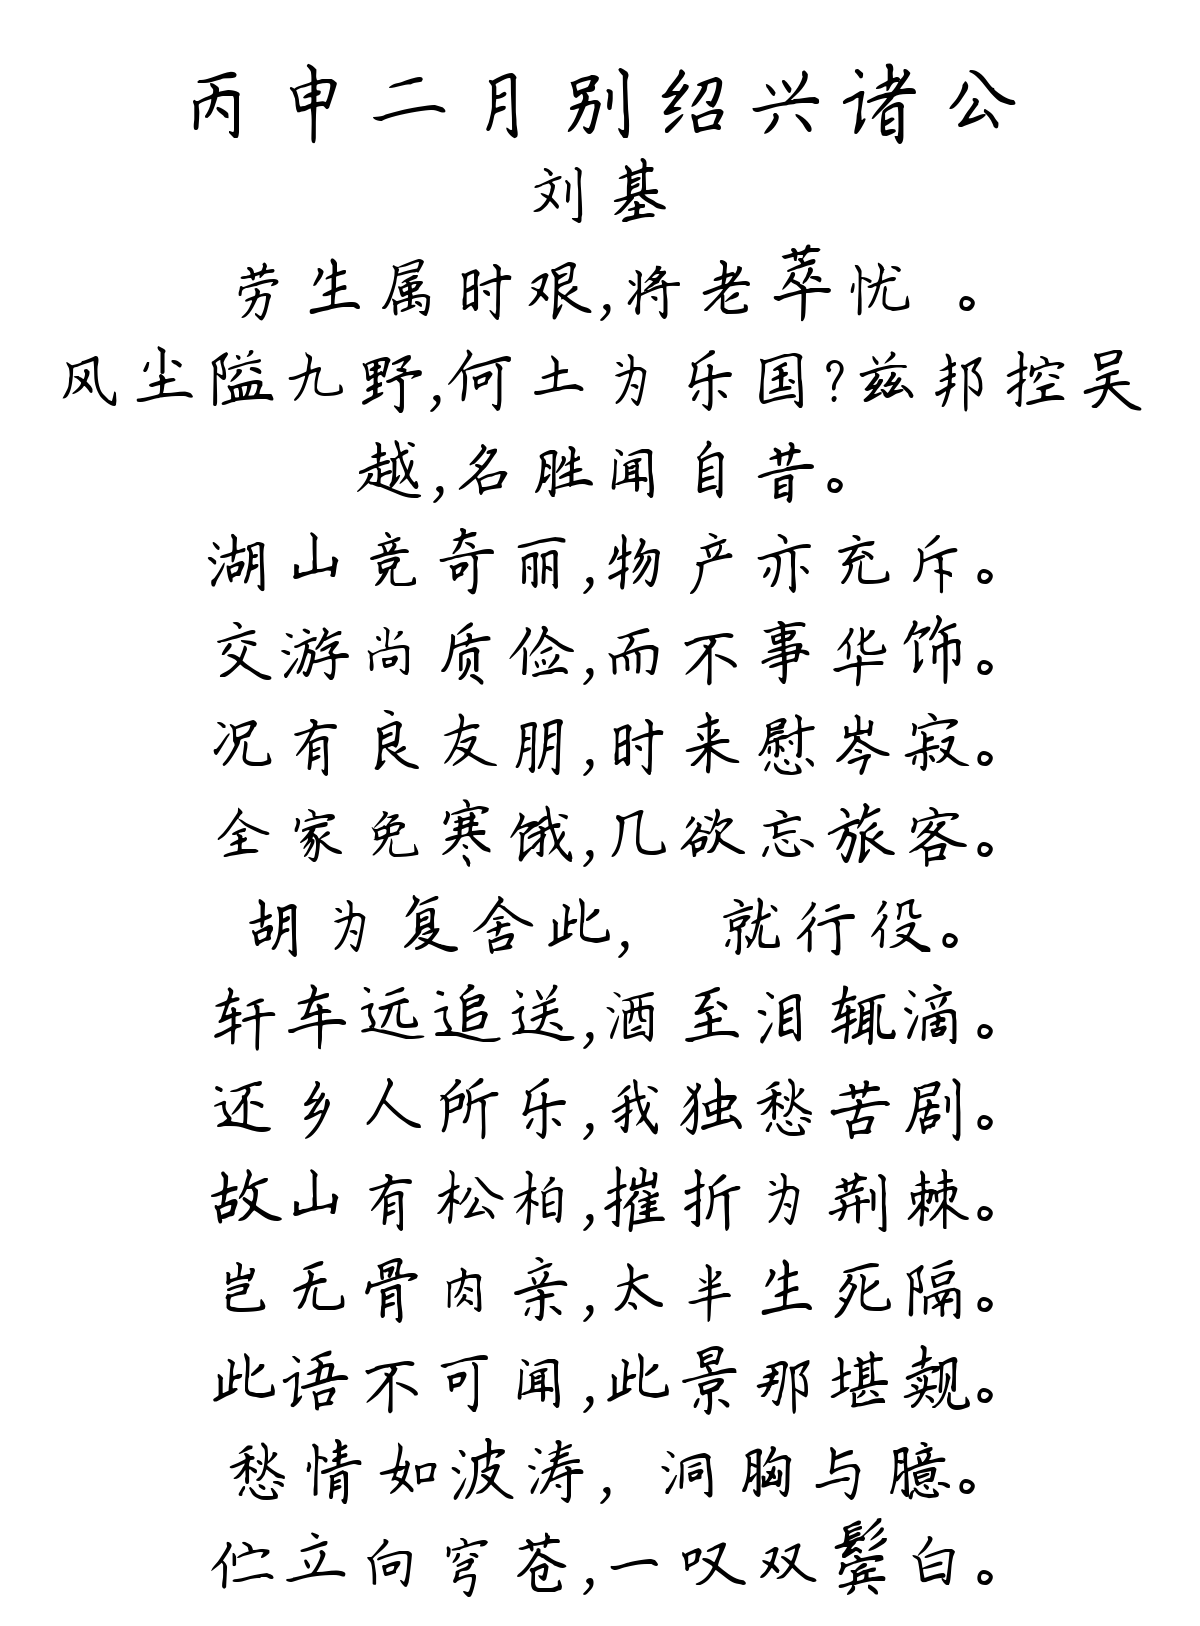 丙申二月别绍兴诸公
刘基
劳生属时艰,将老萃忧 。
风尘隘九野,何土为乐国?兹邦控吴
越,名胜闻自昔。
湖山竞奇丽,物产亦充斥。
交游尚质俭,而不事华饰。
况有良友朋,时来慰岑寂。
全家免寒饿,几欲忘旅客。
胡为复舍此, 就行役。
轩车远追送,酒至泪辄滴。
还乡人所乐,我独愁苦剧。
故山有松柏,摧折为荆棘。
岂无骨肉亲,太半生死隔。
此语不可闻,此景那堪觌。
愁情如波涛, 洞胸与臆。
伫立向穹苍,一叹双鬓白。